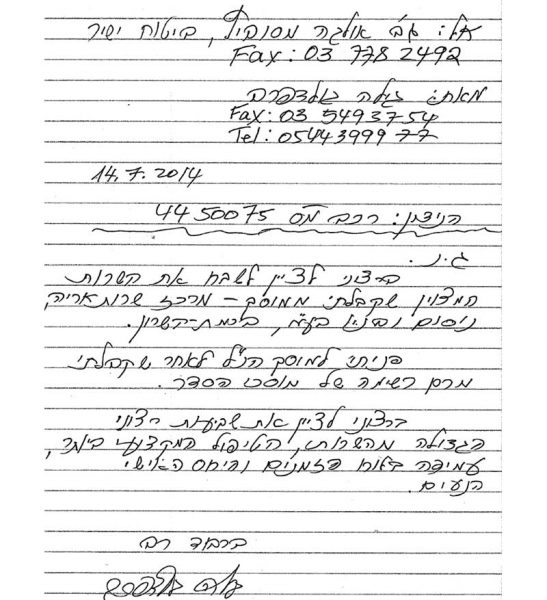 אל: גב' אולגה מסוביץ, ביטוח ישיר
Fax: 03 778 2492
מאת: גילה גולדפרב
Fax: 03 5493754
Tel: 0544399977
14.7.2014
הנידון: רכב מס 4450075
ג.נ.
ברצוני לציין לשבח את השרות
המצוין שקבלתי ממוסך - מרכז שרות אריה,
ניסים ובניו בע"מ, ברמת-השרון.
פניתי למוסך הנ"ל לאחר שקבלתי
מכם רשימה של מוסכי הסדר.
ברצוני לציין את שביעות רצוני
הגדולה מהשרות, הטיפול המקצועי ביותר,
עמידה בלוח הזמנים והיחס האישי
הנעים.
בכבוד רב